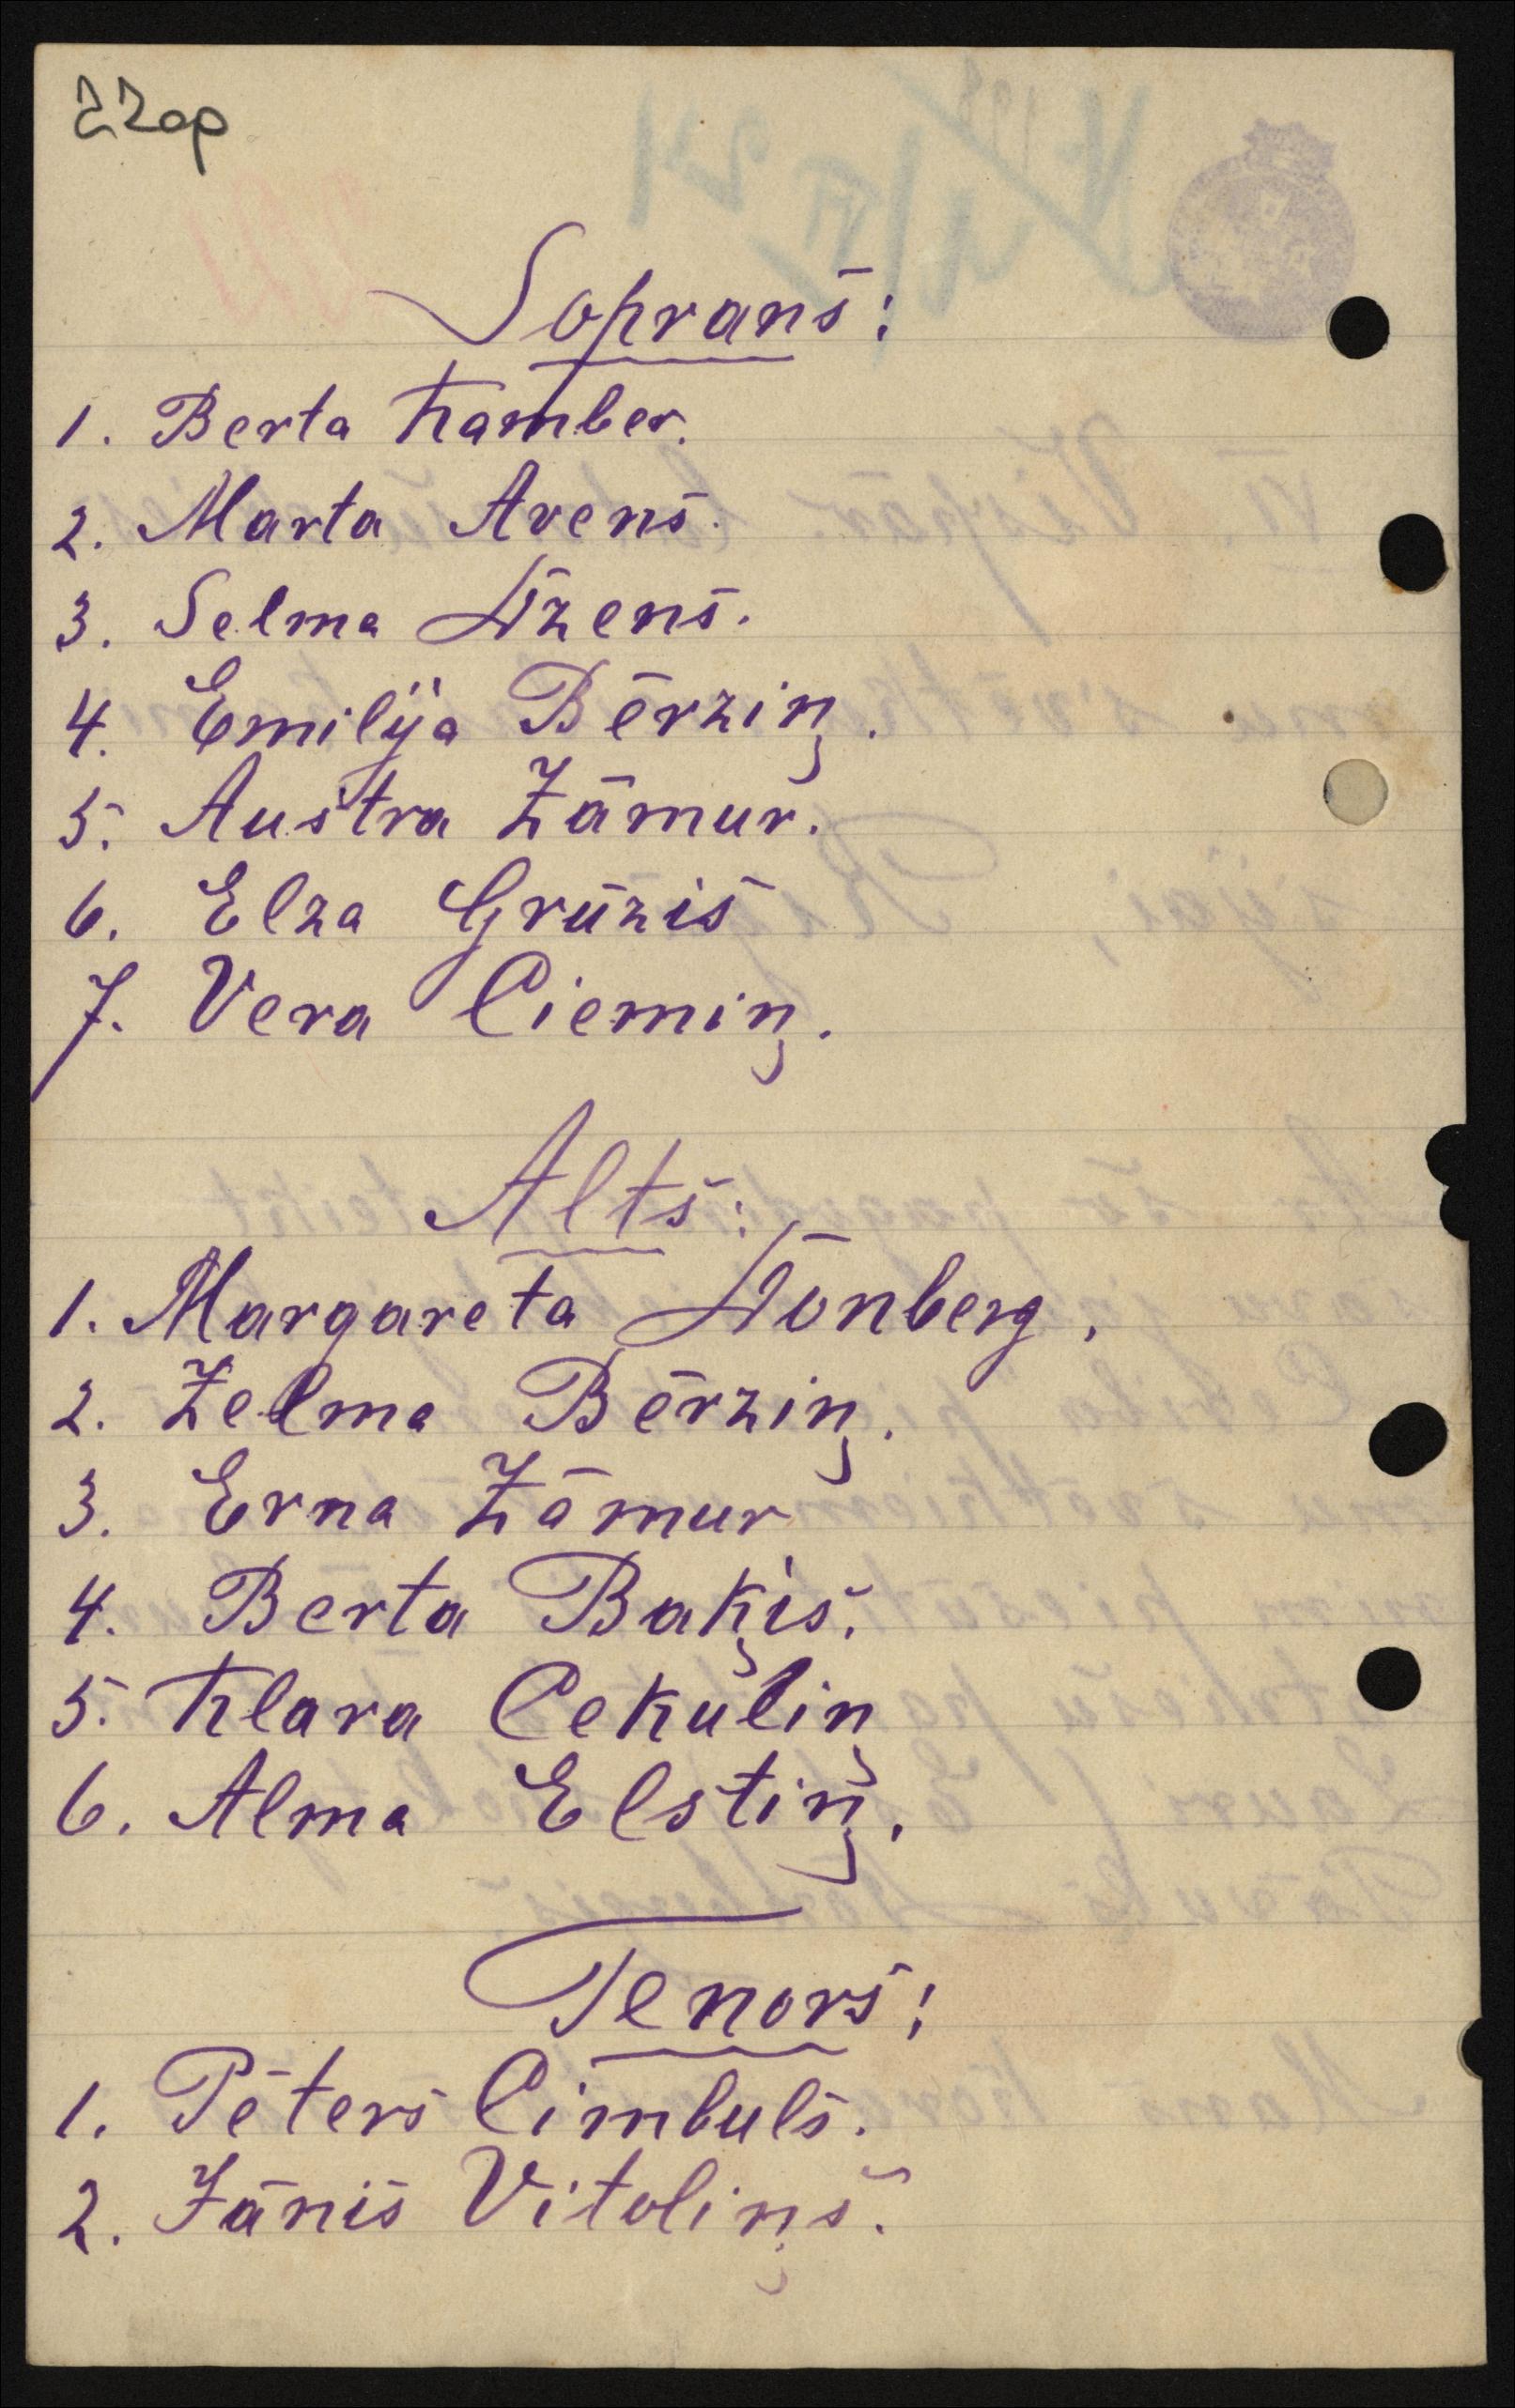 22op
Soprans:
1. Berta Kamber.
2. Marta Avens.
3. Selma Ozens.
4. Emilija Bērziņ.
5. Austra Zāmur.
6. Elza Grūzis
7. Vera Ciemiņ.
Alts:
1. Margareta Štönberg.
2. Zelma Bērziņ.
3. Erna Zāmur
4. Berta Baķis.
5. Klara Cekuliņ
6. Alma Elstiņ.
Tenors:
1. Pēters Cimbuls.
2. Jānis Vitoliņš.